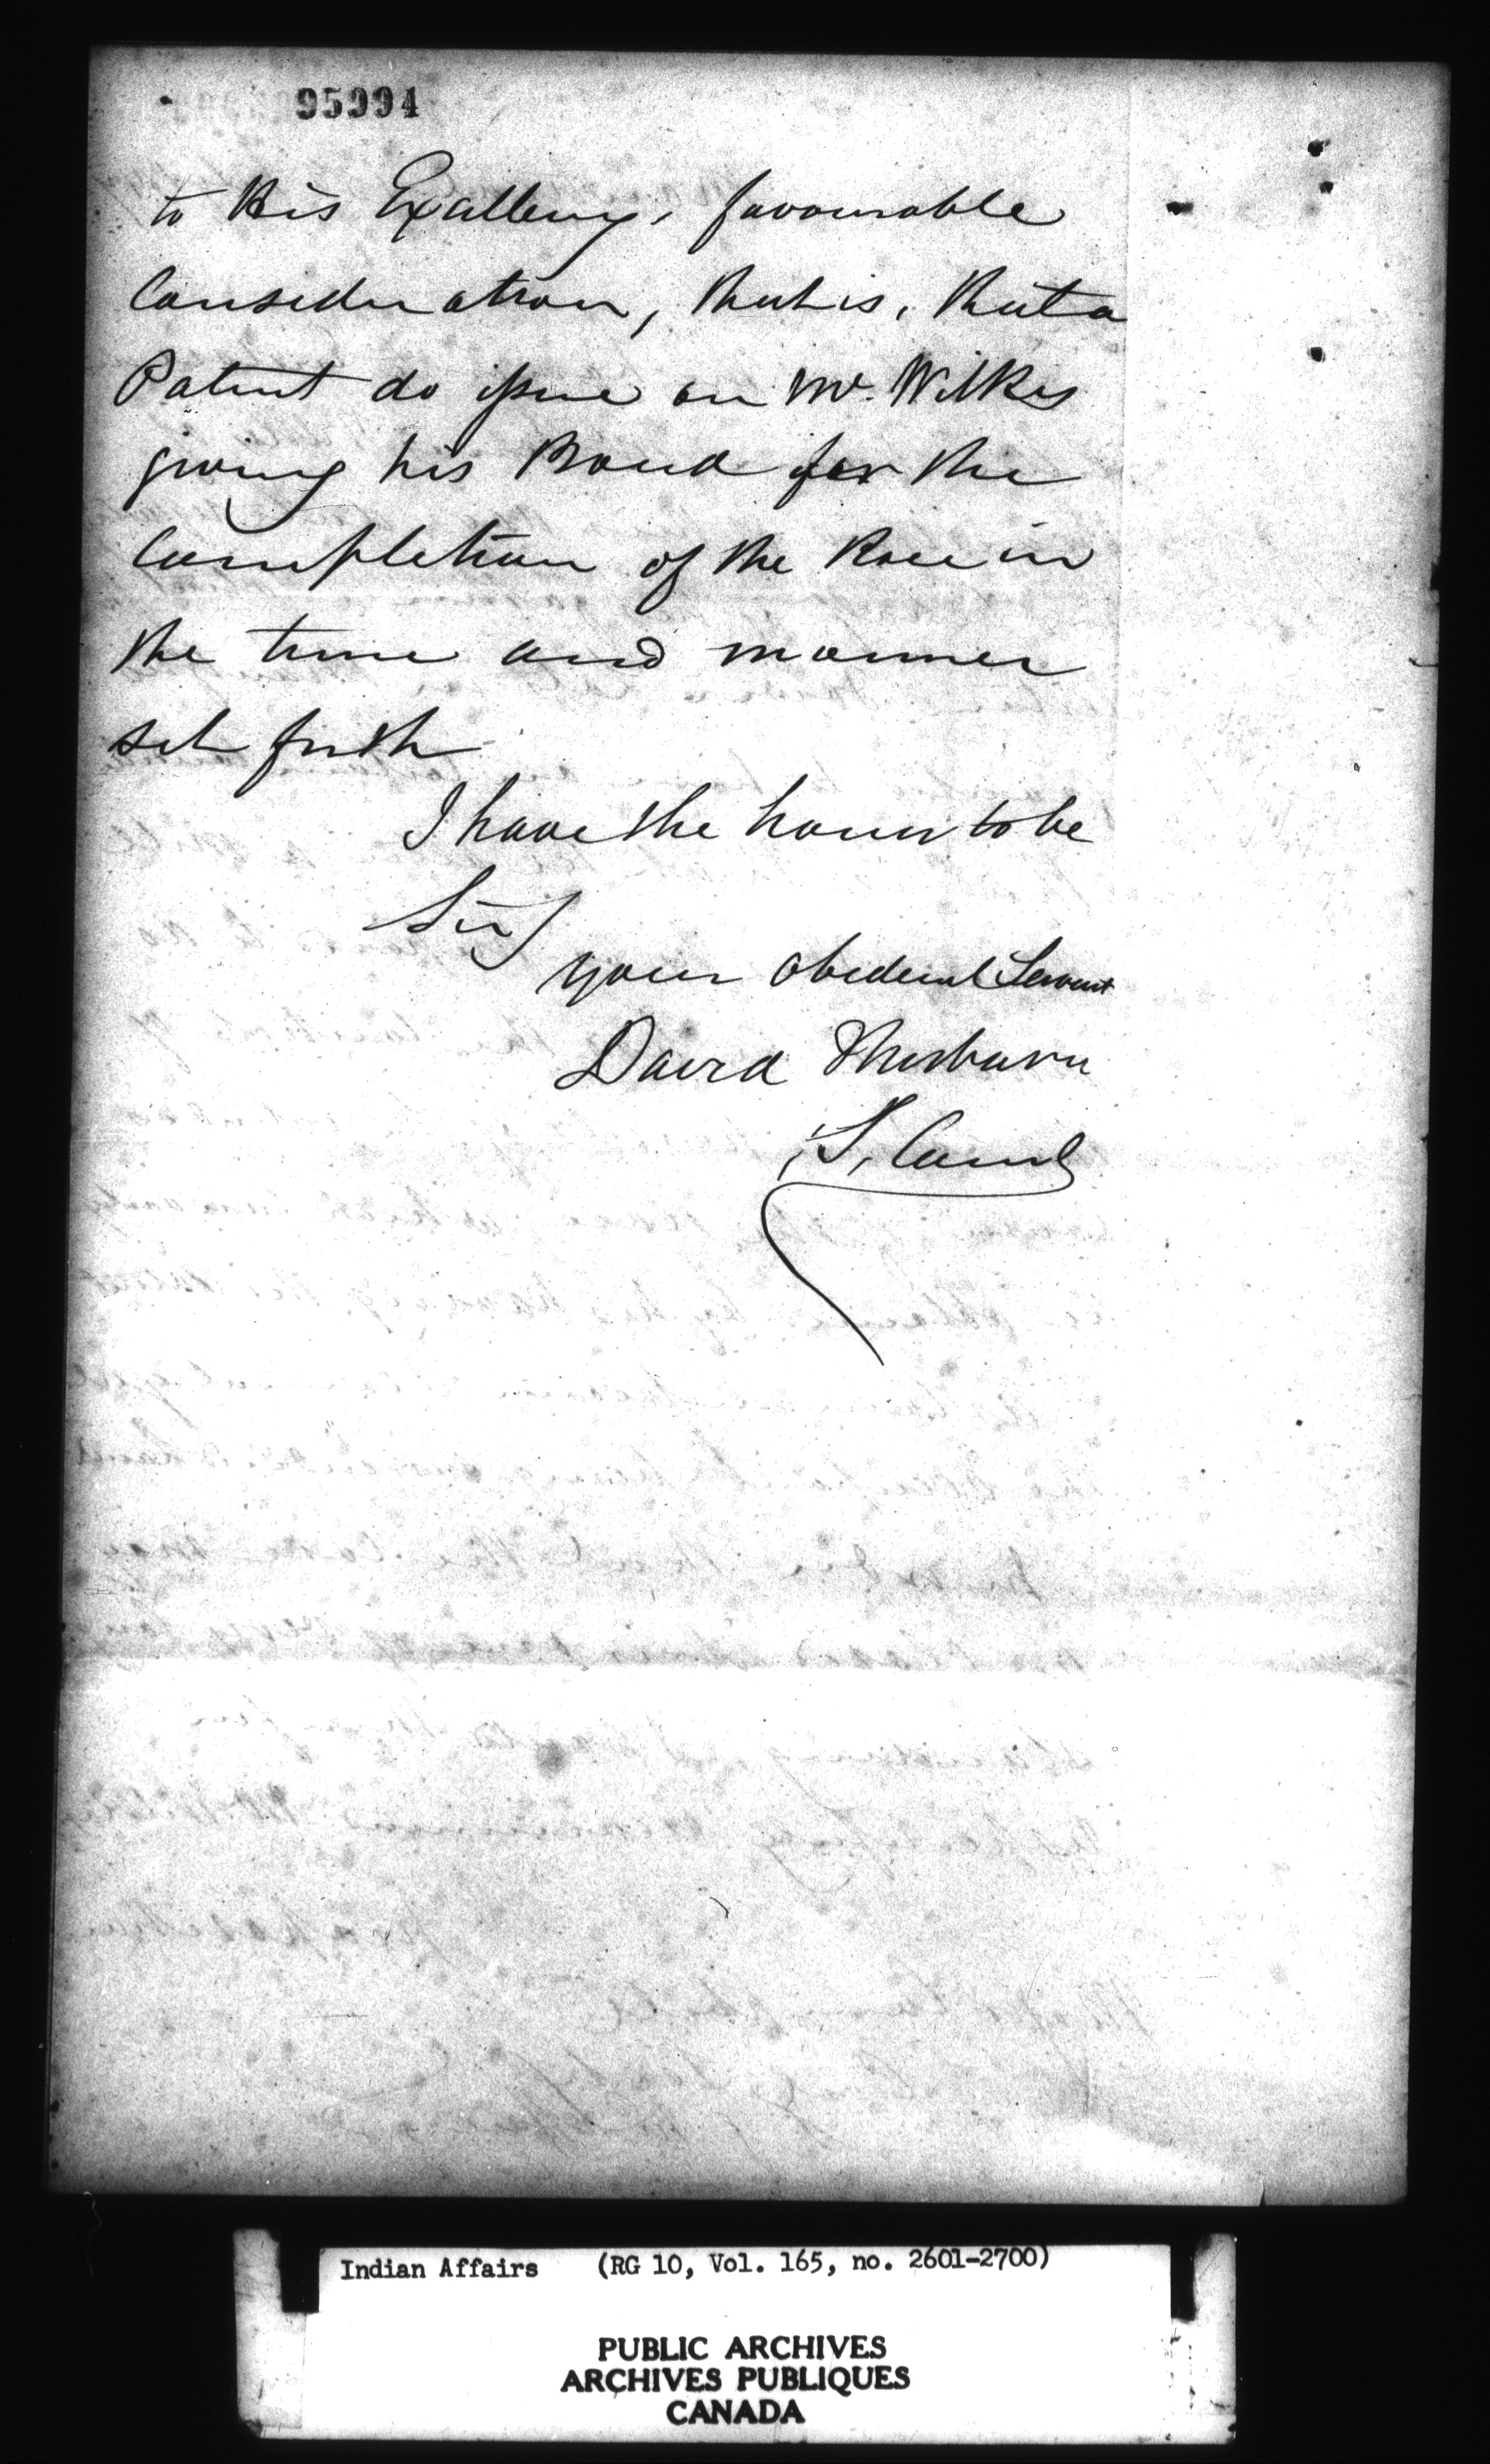 95994
to His Excellency's favourable
Consideration, that is, that a
Patent do issue on Mr. Wilkes
giving his Bond for the
Completion of the Race in
the time and manner
set forth
I have the honor to be
Sir
your obedient Servant
David Thorburn
S. Comr
Indian Affairs (RG 10, Vol. 165, no. 2601-2700)
PUBLIC ARCHIVES
ARCHIVES PUBLIQUES
CANADA